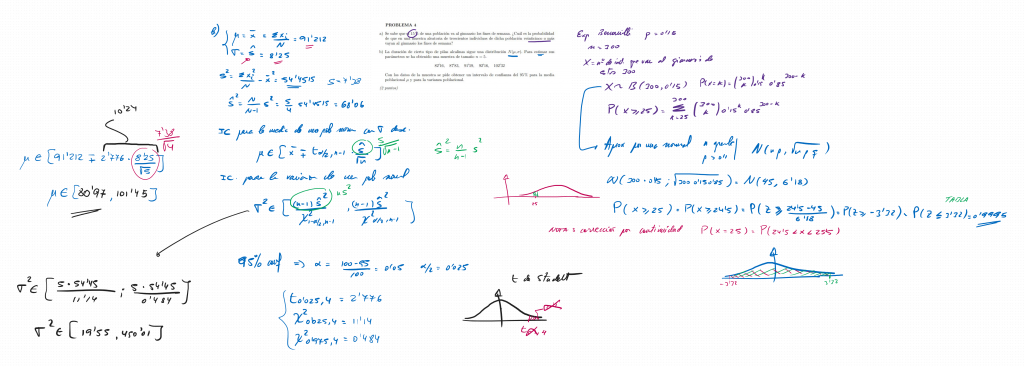 PROBLEMA 4
a) Se sabe que el 15% de una población va al gimnasio los fines de semana. ¿Cuál es la probabilidad
de que en una muestra aleatoria de trescientos individuos de dicha población
vayan al gimnasio los fines de semana?
b) La duración de cierto tipo de pilas alcalinas sigue una distribución N(μ,σ). Para estimar sus
parámetros se ha obtenido una muestra de tamaño n = 5.
Con los datos de la muestra se pide obtener un intervalo de confianza del 95% para la media
poblacional μ y para la varianza poblacional.
b) μ = x̄ = Σxi/N = 91'212
σ = ŝ = 8'25
s² = Σxi²/N - x̄² = 54'4515 s = 7'38
ŝ² = N/N-1 s² = 5/4 54'4515 = 68'06
IC para la media de una pobl norm con σ desc:
μ ∈ [x̄ ∓ tα/2,n-1 ŝ/√n] s/√n-1 ŝ² = n/n-1 s²
IC para la varianza de una pobl normal
σ² ∈ [(n-1)ŝ²/χ²1-α/2,n-1 ; (n-1)ŝ²/χ²α/2,n-1] n s²
95% conf ⇒ α = 100-95/100 = 0'05 α/2 = 0'025
t0'025,4 = 2'776
χ²0'025,4 = 11'14
χ²0'975,4 = 0'484
t de student
10'24
μ ∈ [91'212 ∓ 2'776 · 8'25/√5] 7'38/√4
μ ∈ [80'97, 101'45]
σ² ∈ [5·54'45/11'14 ; 5·54'45/0'484]
Exp Bernoulli p = 0'15
n = 300
X = nº de ind. que van al gimnasio de
estos 300
X ~ B(300, 0'15) P(X=k) = (300 k) 0'15^k 0'85^300-k
P(X ≥ 25) = Σ k=25 300 (300 k) 0'15^k 0'85^300-k
Aprox por una normal n grande p > 0'1 N(np, √npq)
N(300·0'15, √300·0'15·0'85) = N(45, 6'18)
P(X ≥ 25) = P(X ≥ 24'5) = P(Z ≥ 24'5-45/6'18) = P(Z ≥ -3'32) = P(Z ≤ 3'32) = 0'9995
TABLA
Nota = corrección por continuidad P(X=25) = P(24'5 < X < 25'5)
-3'32 3'32